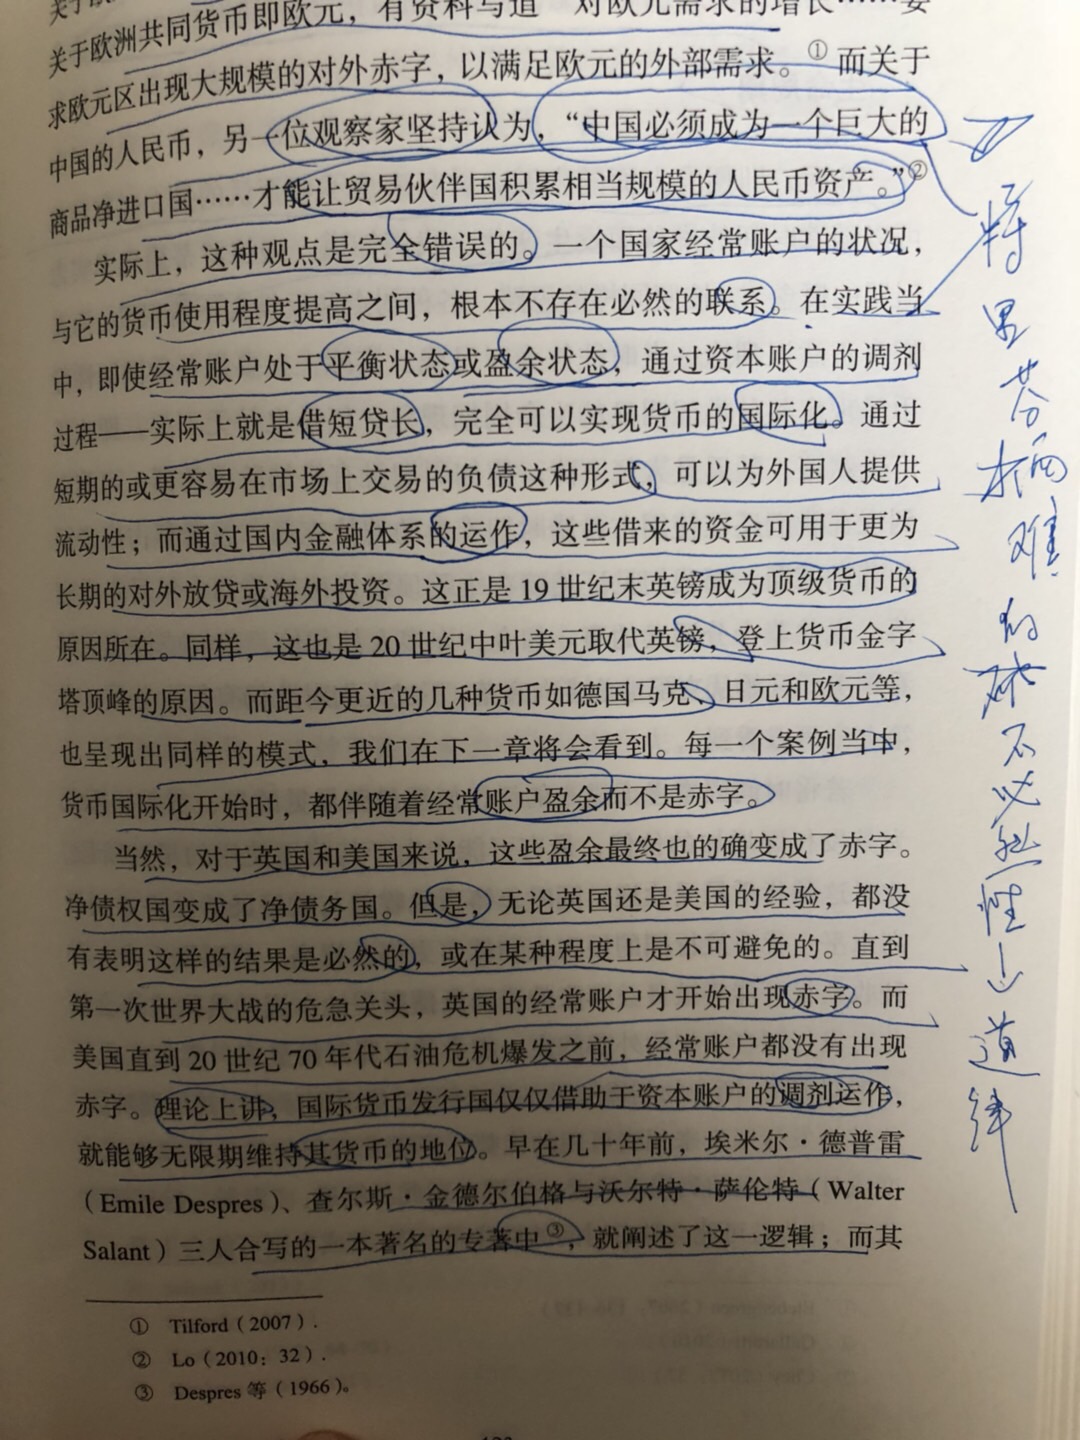 关于欧洲共同货币即欧元，有资料写道“对欧元需求的增长……要
求欧元区出现大规模的对外赤字，以满足欧元的外部需求。①而关于
中国的人民币，另一位观察家坚持认为，“中国必须成为一个巨大的
商品净进口国……才能让贸易伙伴国积累相当规模的人民币资产。”②
实际上，这种观点是完全错误的。一个国家经常账户的状况，
与它的货币使用程度提高之间，根本不存在必然的联系。在实践当
中，即使经常账户处于平衡状态或盈余状态，通过资本账户的调剂
过程——实际上就是借短贷长，完全可以实现货币的国际化。通过
短期的或更容易在市场上交易的负债这种形式，可以为外国人提供
流动性；而通过国内金融体系的运作，这些借来的资金可用于更为
长期的对外放贷或海外投资。这正是 19 世纪末英镑成为顶级货币的
原因所在。同样，这也是 20 世纪中叶美元取代英镑，登上货币金字
塔顶峰的原因。而距今更近的几种货币如德国马克、日元和欧元等，
也呈现出同样的模式，我们在下一章将会看到。每一个案例当中，
货币国际化开始时，都伴随着经常账户盈余而不是赤字。
当然，对于英国和美国来说，这些盈余最终也的确变成了赤字。
净债权国变成了净债务国。但是，无论英国还是美国的经验，都没
有表明这样的结果是必然的，或在某种程度上是不可避免的。直到
第一次世界大战的危急关头，英国的经常账户才开始出现赤字。而
美国直到 20 世纪 70 年代石油危机爆发之前，经常账户都没有出现
赤字。理论上讲，国际货币发行国仅仅借助于资本账户的调剂运作，
就能够无限期维持其货币的地位。早在几十年前，埃米尔·德普雷
（Emile Despres）、查尔斯·金德尔伯格与沃尔特·萨伦特（Walter
Salant）三人合写的一本著名的专著中③，就阐述了这一逻辑；而其
① Tilford（2007）.
② Lo（2010：32）.
③ Despres 等（1966）。
特里芬两难的 不必然性